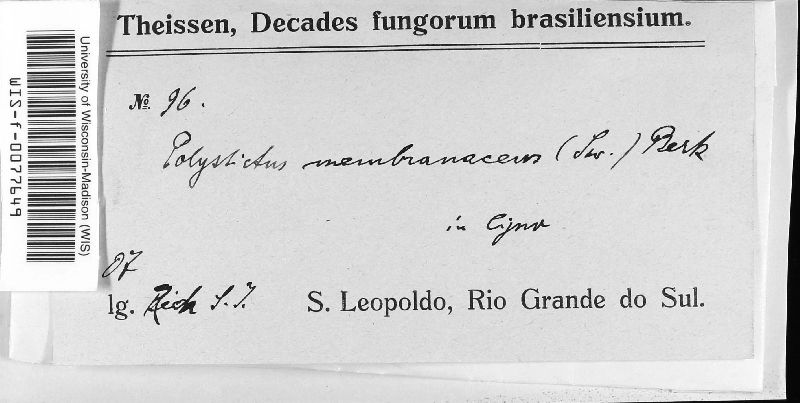 Theissen, Decades fungorum brasiliensium.
№ 96.
Polystictus membranaceus (Sw.) Berk
in ligno
07
lg. Rick S. J. S. Leopoldo, Rio Grande do Sul.
University of Wisconsin-Madison (WIS)
WIS-f-0077649